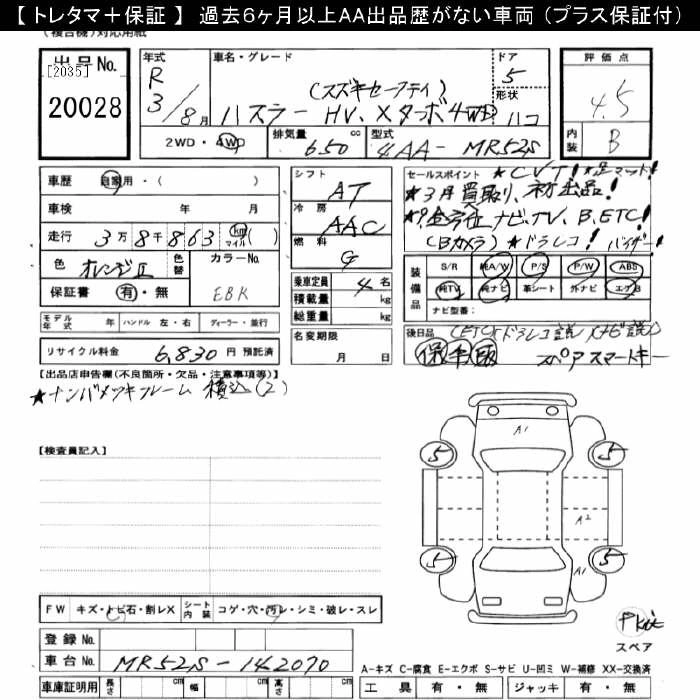 【 トレタマ＋保証 】 過去６ヶ月以上ＡＡ出品歴がない車両（プラス保証付）
（複合機）対応用紙
出品No. [2035] 20028
年式 R 3/8月
車名・グレード (スズキセーフティ) ハスラー HV、Xターボ4WD
ドア 5
形状 ハコ
評価点 4.5
内装 B
2WD・4WD 排気量 650 cc 型式 4AA- MR52S
車歴 自家用・( )
車検 年 月
走行 3万8千863 km マイル ( )
色 オレンジII 色替 カラーNo. EBK
保証書 有・無
モデル年式 年 ハンドル 左・右 ディーラー・並行
リサイクル料金 6,830 円 預託済
シフト AT
冷房 AAC
燃料 G
乗車定員 4 名
積載量 kg
総重量 kg
名変期限 月 日
セールスポイント ★CVT! ★足マット!
★3月買取り、初出品!
★全方位ナビ、TV、B、ETC!
(Bカメラ) ★ドラレコ! バイザー!
装備品 S/R 純A/W P/S P/W ABS
純TV 純ナビ 革シート 外ナビ エアB
ナビ型番:
後日品 (ETC、ドラレコ説、ナビ説)
保 手 取 スペアスマートキー
【出品店申告欄(不良箇所・欠品・注意事項等)】
★ナンバメッキフレーム 積込(2)
【検査員記入】
A1
5 5
A2
5 5
A1
FW キズ・トビ石・割レX シート内装 コゲ・穴・汚レ・シミ・破レ・スレ
Pkit
スペア
登録 No.
車台 No. MR52S-142070
A-キズ C-腐食 E-エクボ S-サビ U-凹ミ W-補修 XX-交換済
車庫証明用 長さ cm 幅 cm 高さ cm 工具 有・無 ジャッキ 有・無